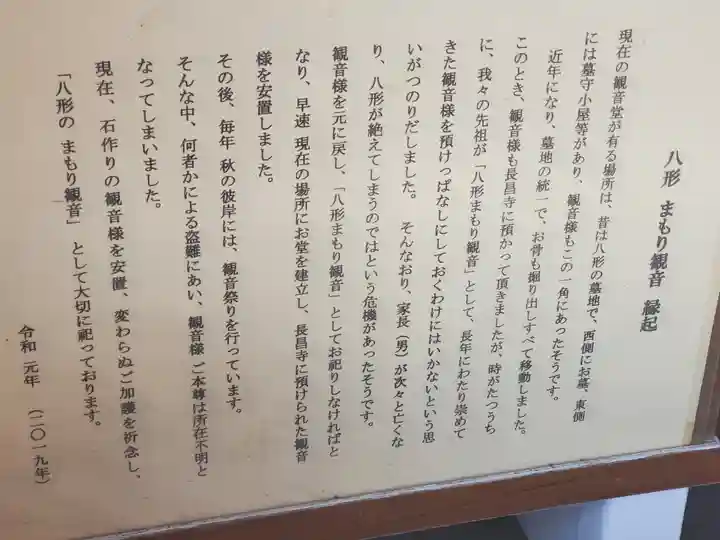 八形 まもり観音 縁起
現在の観音堂が有る場所は、昔は八形の墓地で、西側にお墓、東側
には墓守小屋等があり、観音様もこの一角にあったそうです。
近年になり、墓地の統一で、お骨も掘り出しすべて移動しました。
このとき、観音様も長昌寺に預かって頂きましたが、時がたつうち
に、我々の先祖が「八形まもり観音」として、長年にわたり崇めて
きた観音様を預けっぱなしにしておくわけにはいかないという思
いがつのりだしました。 そんなおり、家長(男)が次々と亡くな
り、八形が絶えてしまうのではという危機があったそうです。
観音様を元に戻し、「八形まもり観音」としてお祀りしなければと
なり、早速 現在の場所にお堂を建立し、長昌寺に預けられた観音
様を安置しました。
その後、毎年 秋の彼岸には、観音祭りを行っています。
そんな中、何者かによる盗難にあい、観音様 ご本尊は所在不明と
なってしまいました。
現在、石作りの観音様を安置、変わらぬご加護を祈念し、
「八形の まもり観音」 として大切に祀っております。
令和 元年 (二〇一九年)